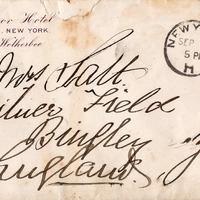 or Hotel
, NEW YORK.
Wetherbee
NEW Y
SEP
5 P
H
Mrs Salt
ilner Field
Bingley
England